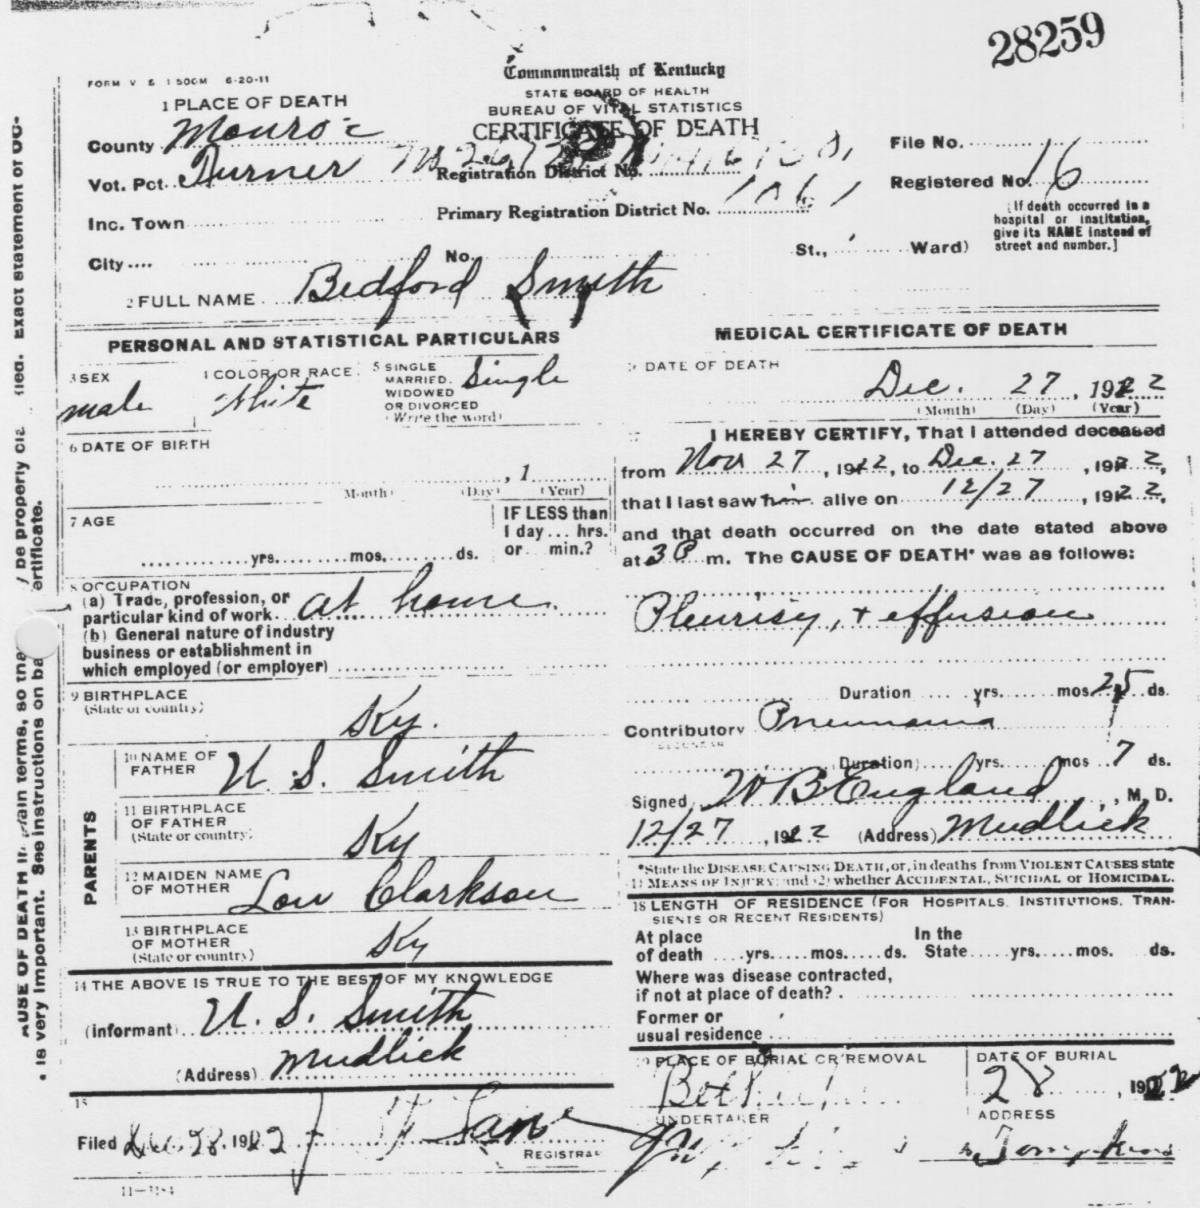 28259
FORM V S 1 500M 6-20-11
Commonwealth of Kentucky
STATE BOARD OF HEALTH
BUREAU OF VITAL STATISTICS
CERTIFICATE OF DEATH
1 PLACE OF DEATH
County Monroe
Vot. Pct. Turner
Registration District No.
File No.
Inc. Town
Primary Registration District No. 1061
Registered No. 16
City
No.
St., Ward)
[If death occurred in a
hospital or institution,
give its NAME instead of
street and number.]
2 FULL NAME Bedford Smith
PERSONAL AND STATISTICAL PARTICULARS
3 SEX
male
4 COLOR OR RACE
White
5 SINGLE
MARRIED,
WIDOWED
OR DIVORCED
(Write the word)
Single
6 DATE OF BIRTH
, 1
(Month) (Day) (Year)
7 AGE
yrs. mos. ds.
IF LESS than
1 day ... hrs.
or ... min.?
8 OCCUPATION
(a) Trade, profession, or
particular kind of work at home
(b) General nature of industry
business or establishment in
which employed (or employer)
9 BIRTHPLACE
(State or country)
Ky.
PARENTS
10 NAME OF
FATHER
U. S. Smith
11 BIRTHPLACE
OF FATHER
(State or country)
Ky
12 MAIDEN NAME
OF MOTHER
Lou Clarkson
13 BIRTHPLACE
OF MOTHER
(State or country)
Ky
14 THE ABOVE IS TRUE TO THE BEST OF MY KNOWLEDGE
(Informant) U. S. Smith
(Address) Mudlick
15
Filed Dec. 28, 1922 Lane
REGISTRAR
11-3184
MEDICAL CERTIFICATE OF DEATH
DATE OF DEATH
Dec. 27, 1922
(Month) (Day) (Year)
I HEREBY CERTIFY, That I attended deceased
from Nov 27, 1922, to Dec. 27, 1922,
that I last saw him alive on 12/27, 1922,
and that death occurred on the date stated above
at 3 P m. The CAUSE OF DEATH* was as follows:
Pleurisy, + effusion
Duration yrs. mos. 25 ds.
Contributory Pneumonia
(Duration) yrs. mos 7 ds.
Signed W B England, M. D.
12/27, 1922 (Address) Mudlick
*State the DISEASE CAUSING DEATH, or, in deaths from VIOLENT CAUSES state
(1) MEANS OF INJURY; and (2) whether ACCIDENTAL, SUICIDAL or HOMICIDAL.
18 LENGTH OF RESIDENCE (FOR HOSPITALS, INSTITUTIONS, TRAN-
SIENTS OR RECENT RESIDENTS)
At place
of death yrs. mos. ds.
In the
State yrs. mos. ds.
Where was disease contracted,
if not at place of death?
Former or
usual residence
19 PLACE OF BURIAL OR REMOVAL
DATE OF BURIAL
28, 1922
UNDERTAKER
ADDRESS
AUSE OF DEATH in plain terms, so that
be properly cla
ified. Exact statement of OC-
is very important. See instructions on ba
ertificate.